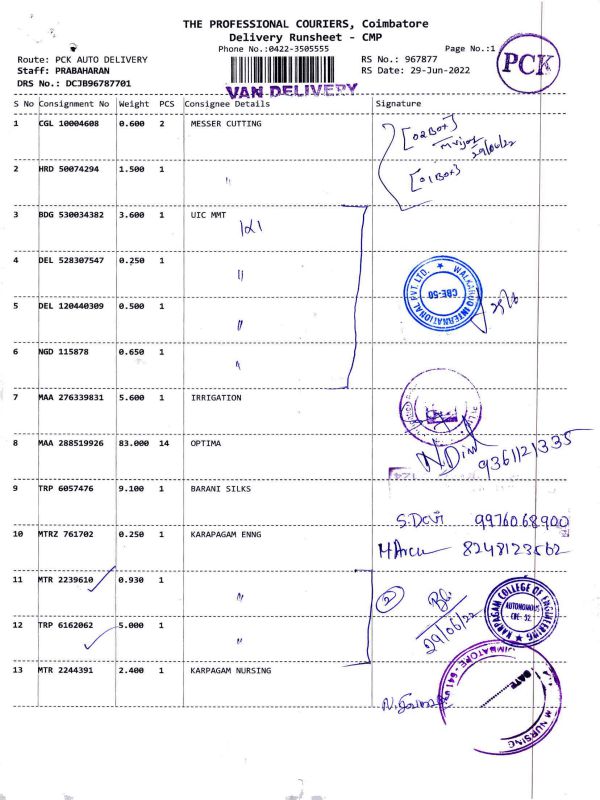 THE PROFESSIONAL COURIERS, Coimbatore
Delivery Runsheet - CMP
Phone No.:0422-3505555
Page No.:1
Route: PCK AUTO DELIVERY
RS No.: 967877
Staff: PRABAHARAN
RS Date: 29-Jun-2022
DRS No.: DCJB96787701
VAN DELIVERY
PCK
S No Consignment No Weight PCS Consignee Details Signature
1 CGL 10004608 0.600 2 MESSER CUTTING
[02 Box]
29/06/22
2 HRD 50074294 1.500 1 "
[01 Box]
3 BDG 530034382 3.600 1 UIC MMT
4 DEL 528307547 0.250 1 "
WALKAROO INTERNATIONAL PVT. LTD. ★
CBE-50
5 DEL 120440309 0.500 1 "
6 NGD 115878 0.650 1 "
7 MAA 276339831 5.600 1 IRRIGATION
8 MAA 288519926 83.000 14 OPTIMA
9361121335
9 TRP 6057476 9.100 1 BARANI SILKS
S.Devi 9976068900
10 MTRZ 761702 0.250 1 KARAPAGAM ENNG
8248123562
11 MTR 2239610 0.930 1 "
2
29/06/22
KARPAGAM COLLEGE OF ENGINEERING ★
AUTONOMOUS
CBE- 32.
12 TRP 6162062 5.000 1 "
13 MTR 2244391 2.400 1 KARPAGAM NURSING
DATE
NURSING